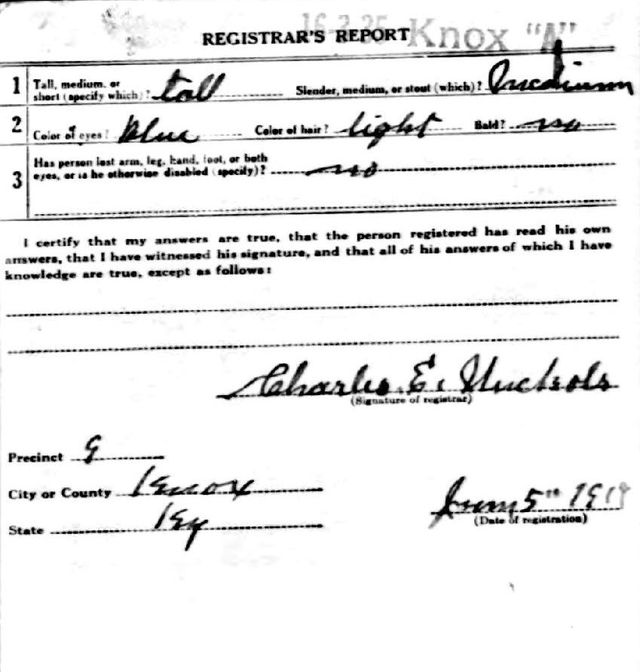 16-3-25 Knox "A"
REGISTRAR'S REPORT
1 Tall, medium, or short (specify which)? tall Slender, medium, or stout (which)? medium
2 Color of eyes? blue Color of hair? light Bald? no
3 Has person lost arm, leg, hand, foot, or both eyes, or is he otherwise disabled (specify)? no
I certify that my answers are true, that the person registered has read his own
answers, that I have witnessed his signature, and that all of his answers of which I have
knowledge are true, except as follows:
Charles E.
(Signature of registrar)
Precinct 9
City or County Knox
State Ky
June 5th 191
(Date of registration)